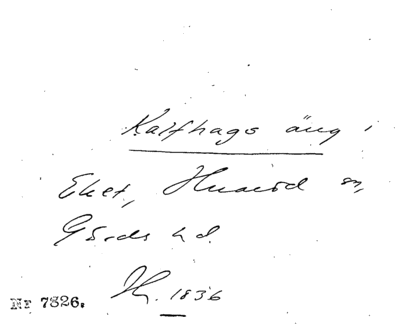 Kalfhags äng i
Eket, Huaröd sn,
Gärds hd.
Hy. 1836
Nr 7326.